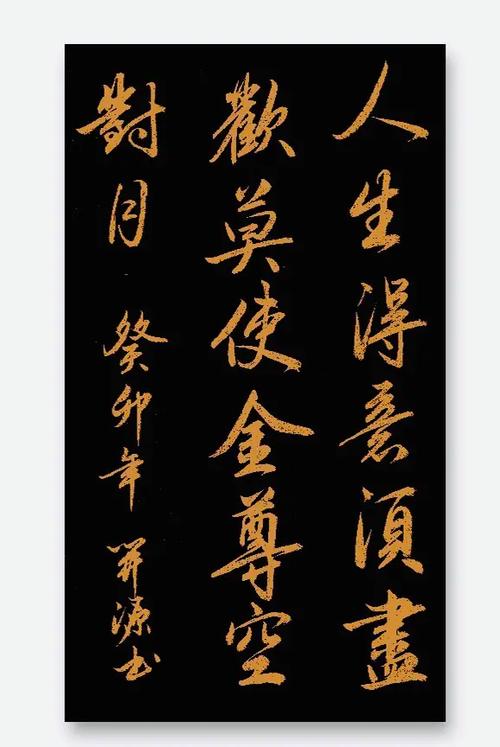 人生得意須盡
歡莫使金尊空
對月
癸卯年 開源书